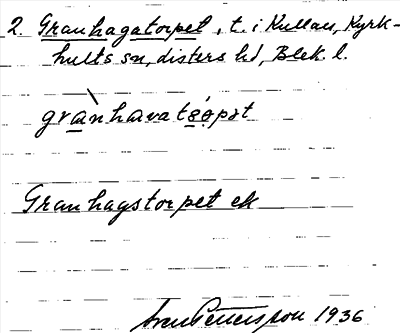 2. Granhagatorpet, t. i Kullan, Kyrk-
hults sn, Listers hd, Blek. l.
grànhavatśǫpət
Granhagstorpet ek
Sven Petterson 1936